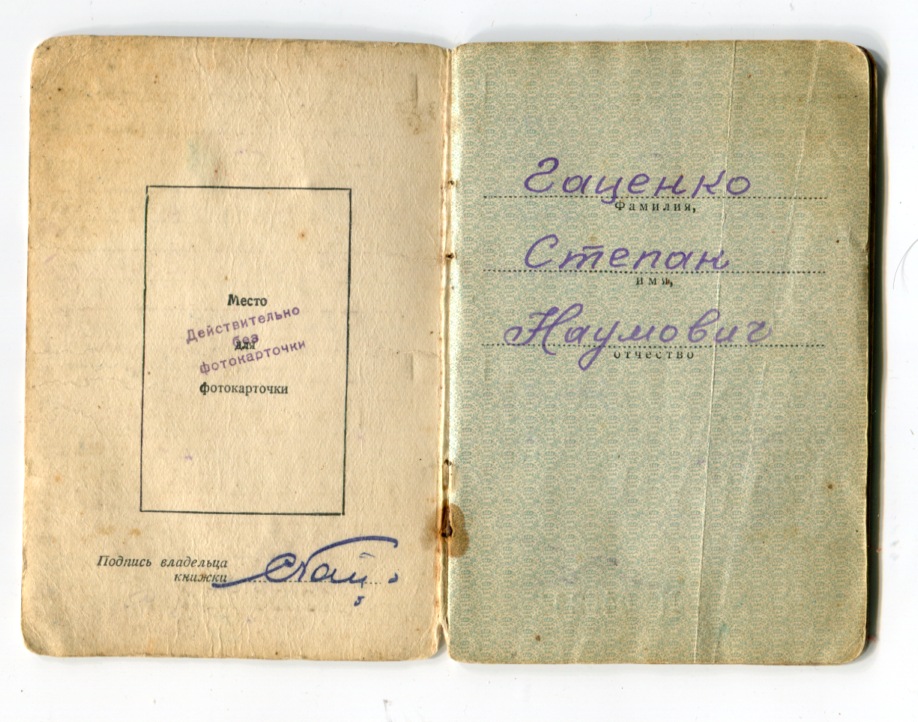 Место
для
фотокарточки
Действительно
без
фотокарточки
Подпись владельца
книжки
Гаценко
Фамилия,
Степан
имя,
Наумович
отчество